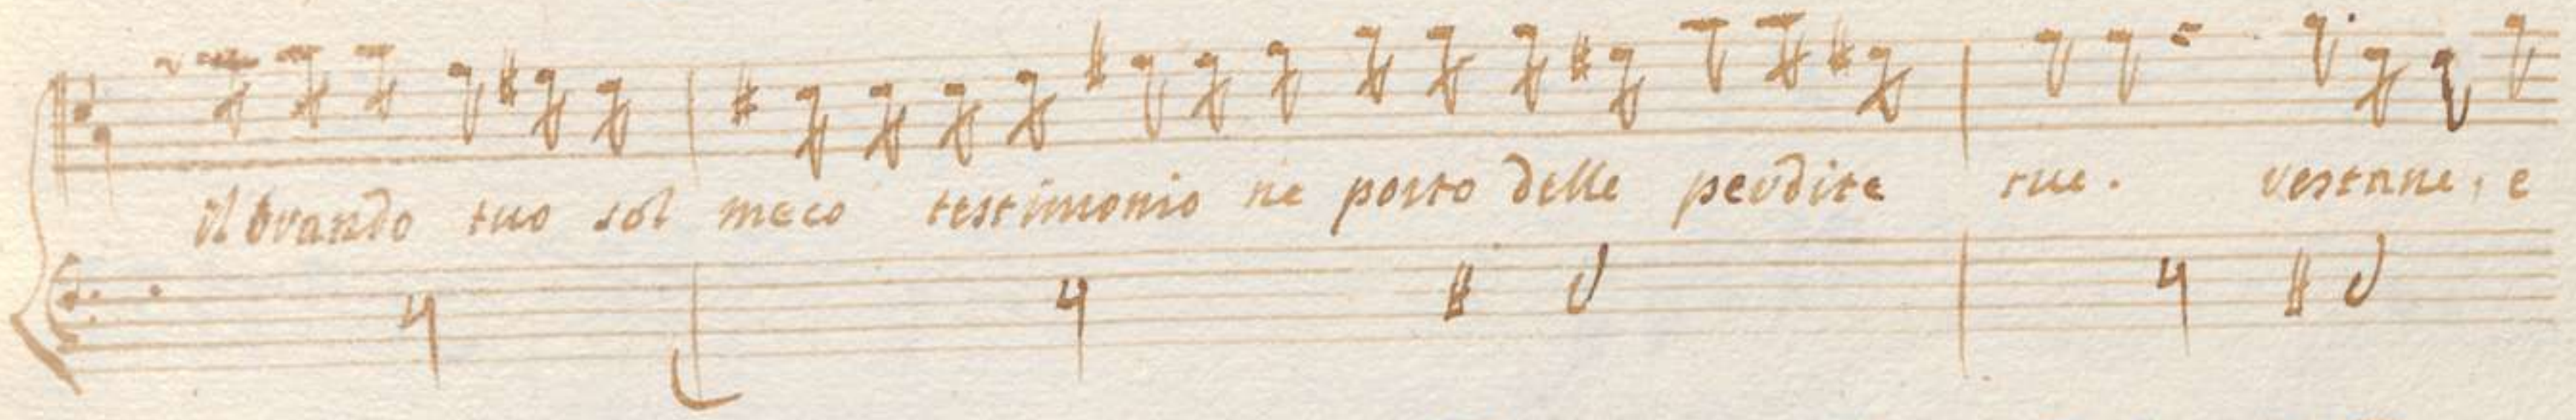 il brando tuo sol meco testimonio ne porto delle perdite tue. restane, e